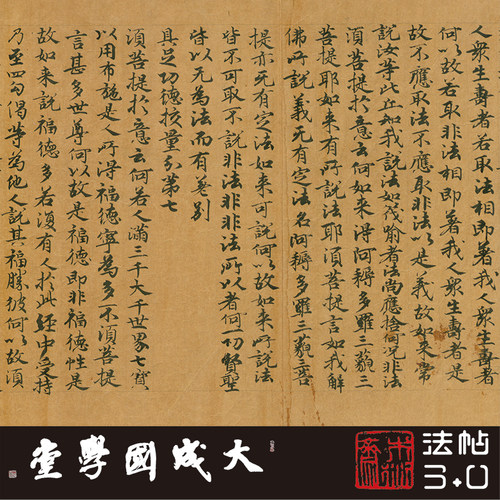 人衆生壽者若取法相即著我人衆生壽者
何以故若取非法相即著我人衆生壽者是
故不應取法不應取非法以是義故如來常
說汝等比丘知我說法如筏喻者法尚應捨何況非法
須菩提於意云何如來得阿耨多羅三藐三
菩提耶如來有所說法耶須菩提言如我解
佛所說義无有定法名阿耨多羅三藐三菩
提亦无有定法如來可說何以故如來所說法
皆不可取不說非法非非法所以者何一切賢聖
皆以无為法而有差別
具足功德校量分第七
須菩提於意云何若人滿三千大千世界七寶
以用布施是人所得福德寧為多不須菩提
言甚多世尊何以故是福德即非福德性是
故如來說福德多若復有人於此經中受持
乃至四句偈等為他人說其福勝彼何以故須
大成國學堂
法帖
3.0